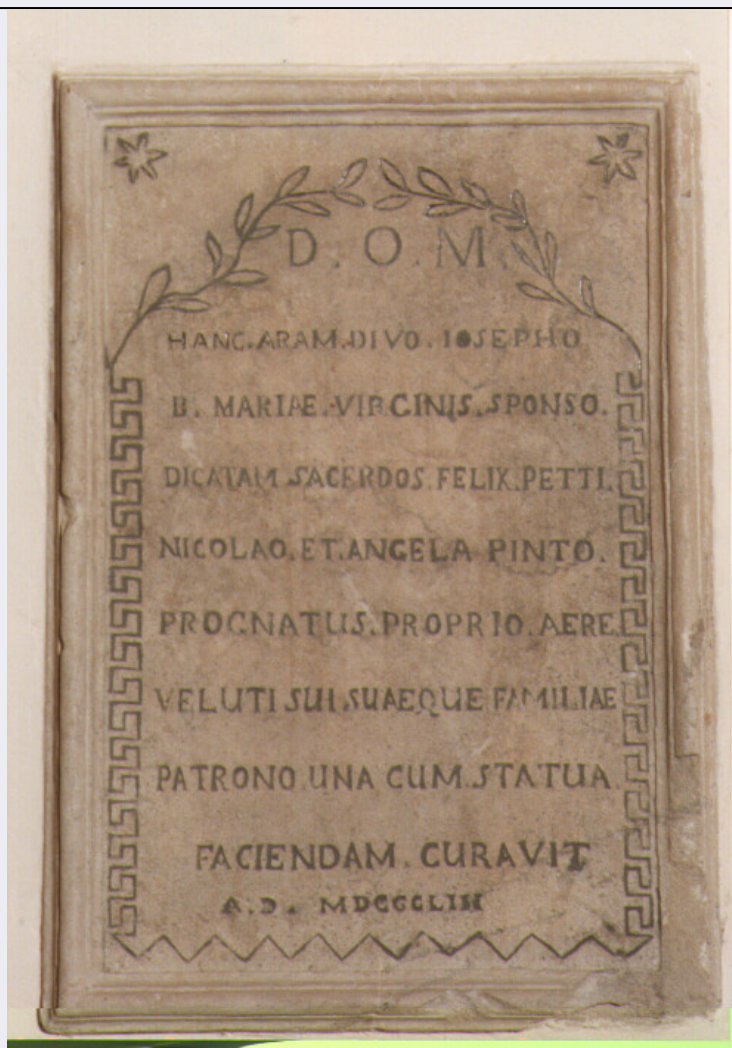 D. O. M.
HANC.ARAM.DIVO.IOSEPHO
B. MARIAE.VIRGINIS.SPONSO.
DICATAM SACERDOS.FELIX.PETTI.
NICOLAO.ET.ANGELA PINTO.
PROGNATUS.PROPRIO.AERE.
VELUTI SUI.SUAEQUE FAMILIAE
PATRONO UNA CUM.STATUA.
FACIENDAM.CURAVIT
A.D. MDCCCLIII